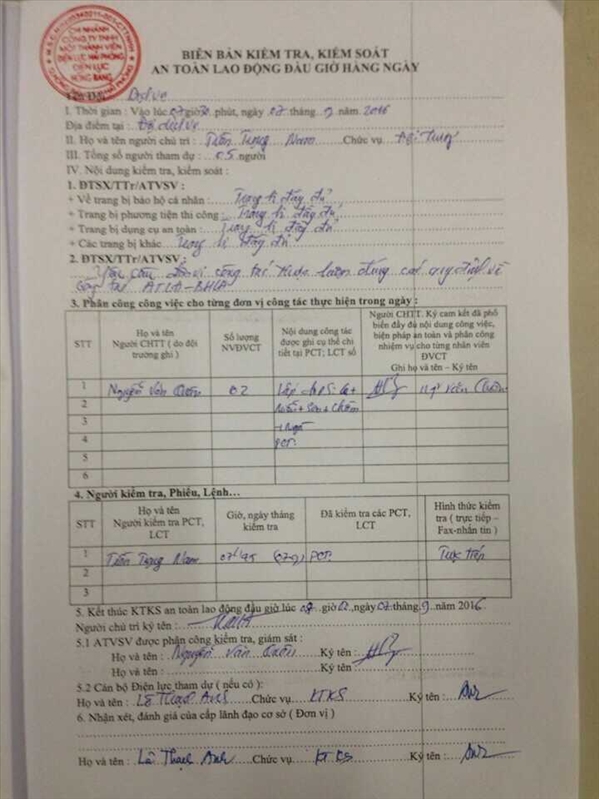 CHI NHÁNH
CÔNG TY TNHH
MỘT THÀNH VIÊN
ĐIỆN LỰC HẢI PHÒNG
ĐIỆN LỰC
HỒNG BÀNG
BIÊN BẢN KIỂM TRA, KIỂM SOÁT
AN TOÀN LAO ĐỘNG ĐẦU GIỜ HÀNG NGÀY
I. Thời gian : Vào lúc 07 giờ 30 phút, ngày 07 tháng 9 năm 2016
Địa điểm tại :
II. Họ và tên người chủ trì : Trần Trọng Nam Chức vụ : Đội Trưởng
III. Tổng số người tham dự : 05 người
IV. Nội dung kiểm tra, kiểm soát :
1. ĐTSX/TTr/ATVSV :
+ Về trang bị bảo hộ cá nhân : Trang bị đầy đủ
+ Trang bị phương tiện thi công : Trang bị đầy đủ
+ Trang bị dụng cụ an toàn : Trang bị đầy đủ
+ Các trang bị khác Trang bị đầy đủ
2. ĐTSX/TTr/ATVSV :
Yêu cầu đơn vị công tác thực hiện đúng các quy định về
công tác ATLĐ-BHLĐ
3. Phân công công việc cho từng đơn vị công tác thực hiện trong ngày :
STT Họ và tên Người CHTT ( do đội trưởng ghi ) Số lượng NVĐVCT Nội dung công tác được ghi cụ thể chi tiết tại PCT; LCT số Người CHTT. Ký cam kết đã phổ biến đầy đủ nội dung công việc, biện pháp an toàn và phân công nhiệm vụ cho từng nhân viên ĐVCT Ghi họ và tên – Ký tên
1 Nguyễn Văn 02 Văn
2
3
4 PCT
5
6
4. Người kiểm tra, Phiếu, Lệnh…
STT Họ và tên Người kiểm tra PCT, LCT Giờ, ngày tháng kiểm tra Đã kiểm tra các PCT, LCT Hình thức kiểm tra ( trực tiếp – Fax-nhắn tin )
1 Trần Trọng Nam PCT Trực tiếp
2
3
5. Kết thúc KTKS an toàn lao động đầu giờ lúc 08 giờ ,ngày 07 tháng 9 năm 2016
Người chủ trì ký tên :
5.1 ATVSV được phân công kiểm tra, giám sát :
Họ và tên : Nguyễn Văn Ký tên :
Họ và tên : Ký tên :
5.2 Cán bộ Điện lực tham dự ( nếu có ):
Họ và tên : Lê Thạch Anh Chức vụ KTKS Ký tên :
6. Nhận xét, đánh giá của cấp lãnh đạo cơ sở ( Đơn vị )
Họ và tên : Lê Thạch Anh Chức vụ : KTKS Ký tên :